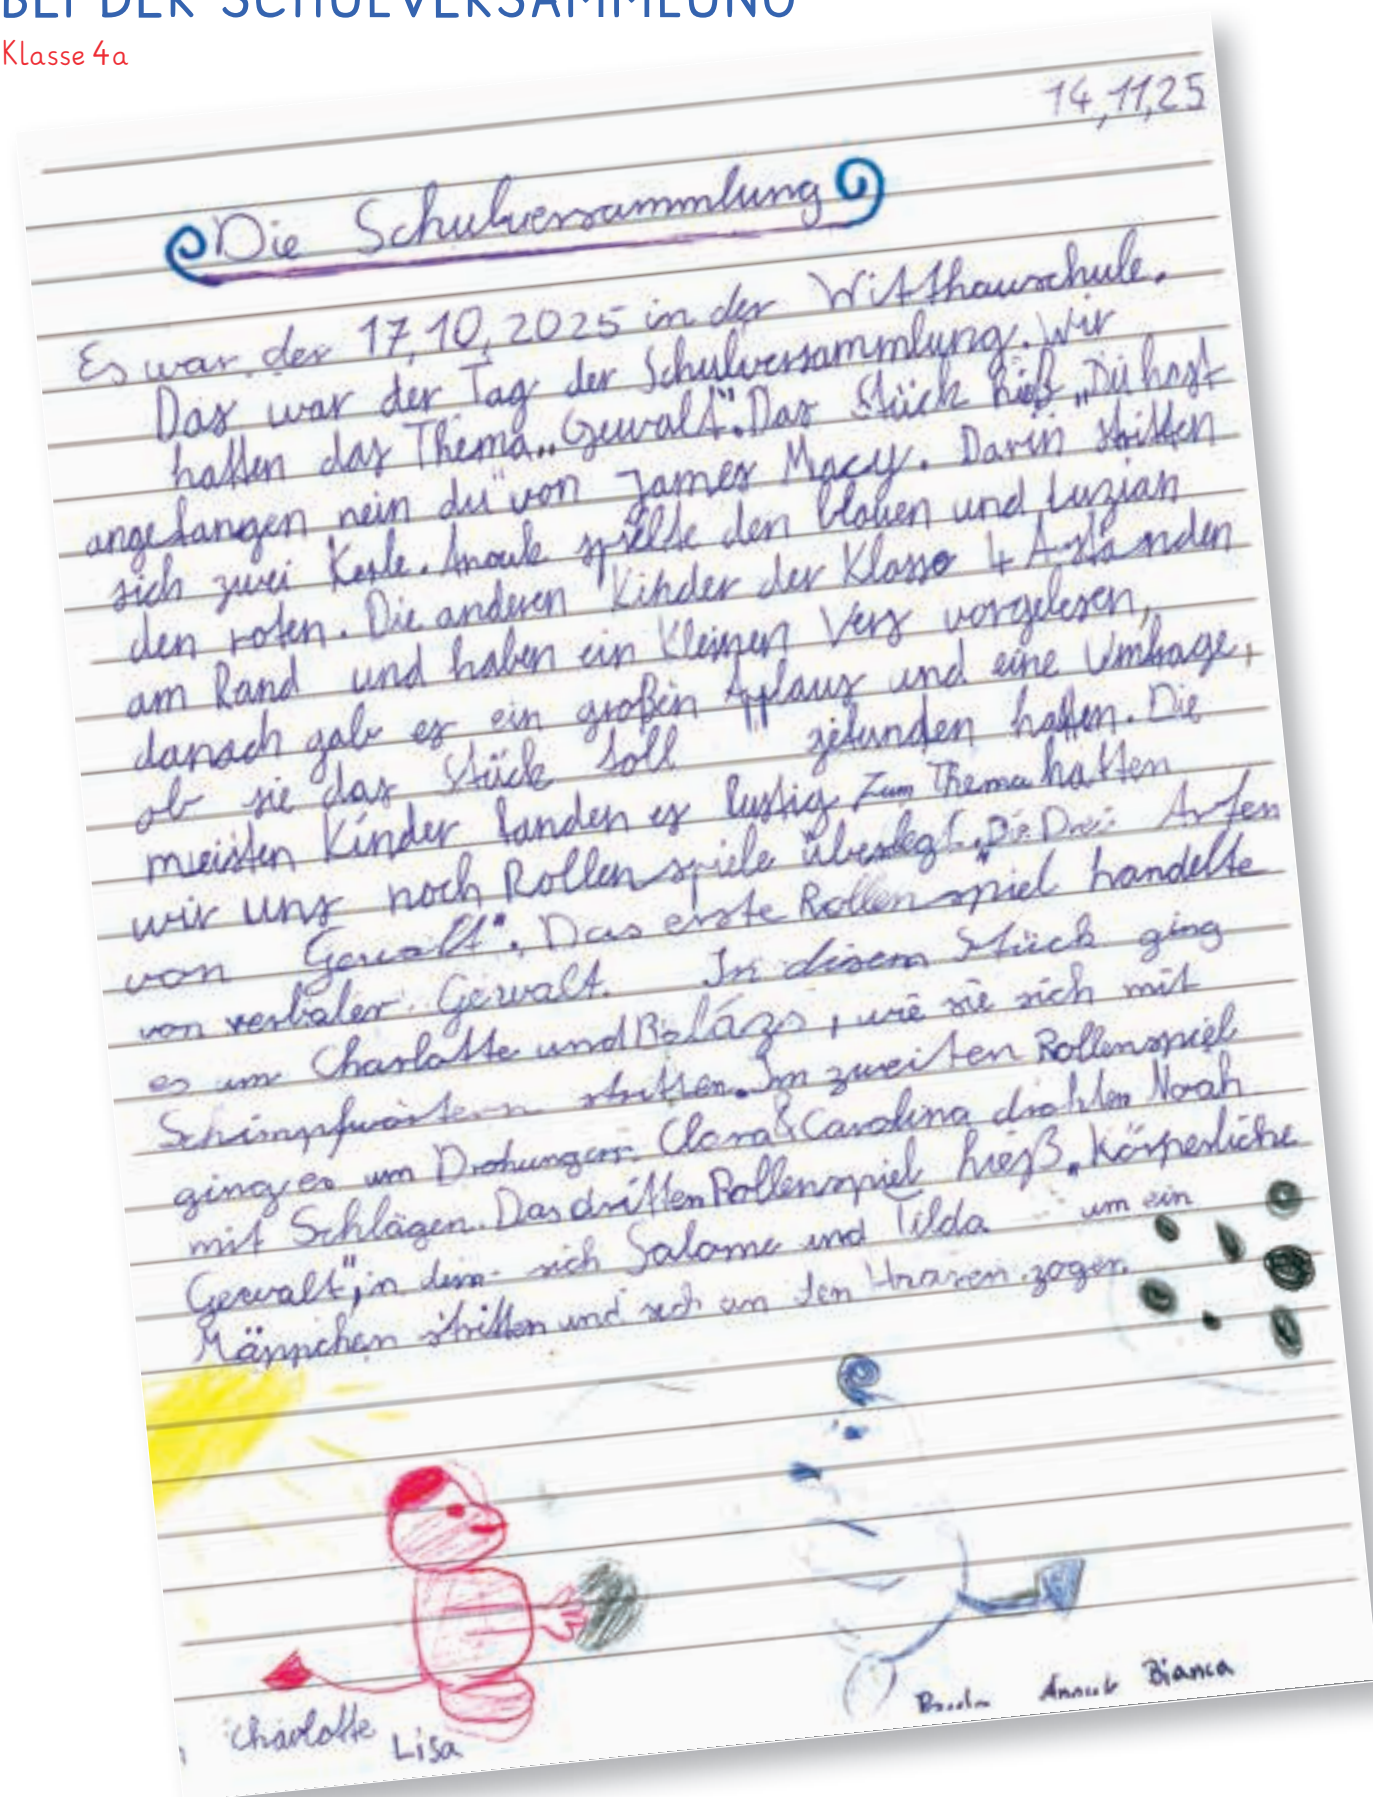 BEI DER SCHULVERSAMMLUNG
Klasse 4a
14,11,25
Die Schulversammlung
Es war der 17,10,2025 in der Witthauschule.
Das war der Tag der Schulversammlung. Wir
hatten das Thema „Gewalt". Das Stück hieß „Du hast
angefangen nein du" von James Macy. Darin stritten
sich zwei Kerle. Anouk spielte den blauen und Luzian
den roten. Die anderen Kinder der Klasse 4 A standen
am Rand und haben ein kleinen Vers vorgelesen,
danach gab es ein großen Applaus und eine Umfrage,
ob sie das Stück toll gefunden hatten. Die
meisten Kinder fanden es lustig. Zum Thema hatten
wir uns noch Rollenspiele überlegt. „Die Drei Arten
von Gewalt". Das erste Rollenspiel handelte
von verbaler Gewalt. In diesem Stück ging
es um Charlotte und Balázs, wie sie sich mit
Schimpfwörtern stritten. Im zweiten Rollenspiel
ging es um Drohungen. Clara & Carolina drohten Noah
mit Schlägen. Das dritten Rollenspiel hieß „Körperliche
Gewalt", in dem sich Salome und Tilda um ein
Männchen stritten und sich an den Haaren zogen.
Charlotte Lisa Anouk Bianca